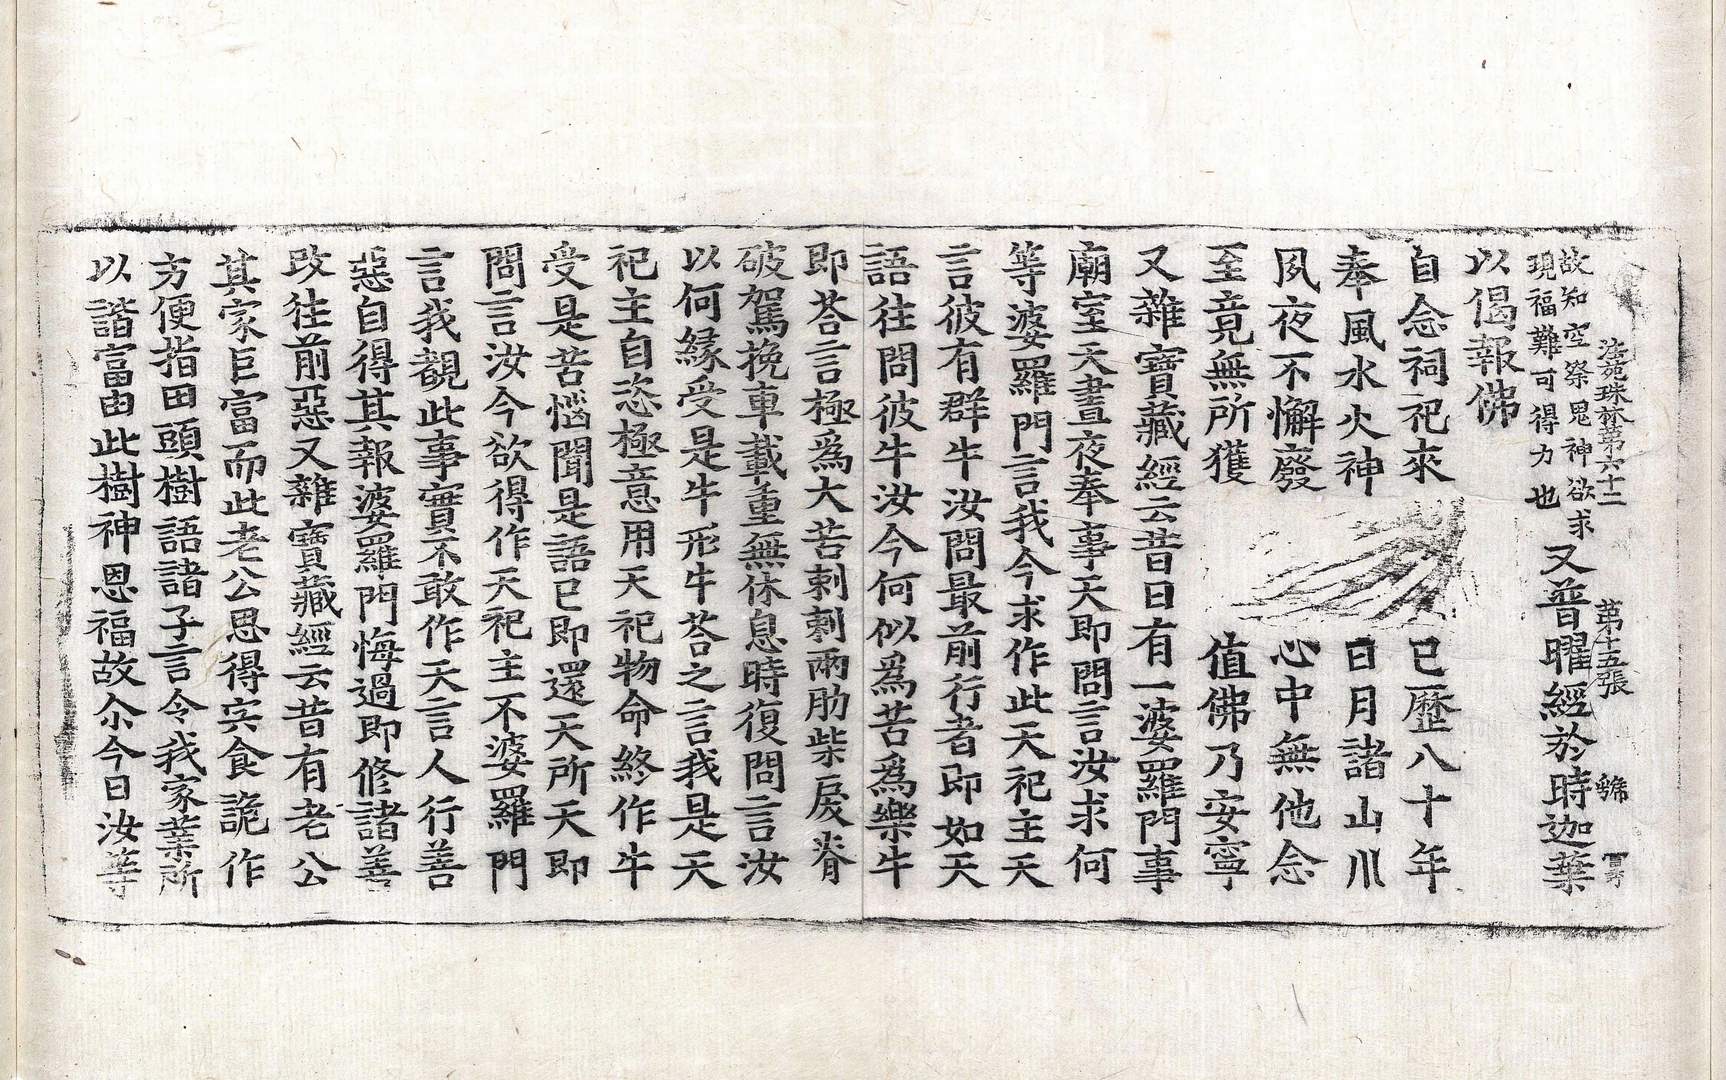 法苑珠林第六十二 第十五張 號
故知空祭鬼神欲求
現福難可得力也
又普曜經於時迦葉
以偈報佛
自念祠祀來 已歷八十年
奉風水火神 日月諸山川
夙夜不懈廢 心中無他念
至竟無所獲 値佛乃安寧
又雜寶藏經云昔日有一婆羅門事
廟室天晝夜奉事天即問言汝求何
等婆羅門言我今求作此天祀主天
言彼有群牛汝問最前行者即如天
語往問彼牛汝今何似爲苦爲樂牛
即荅言極爲大苦刺刺兩肋柴戾脊
破駕挽車載重無休息時復問言汝
以何緣受是牛形牛荅之言我是天
祀主自恣極意用天祀物命終作牛
受是苦惱聞是語已即還天所天即
問言汝今欲得作天祀主不婆羅門
言我觀此事實不敢作天言人行善
惡自得其報婆羅門悔過即修諸善
改往前惡又雜寶藏經云昔有老公
其家巨富而此老公思得宍食詭作
方便指田頭樹語諸子言今我家業所
以諧富由此樹神恩福故尒今日汝等